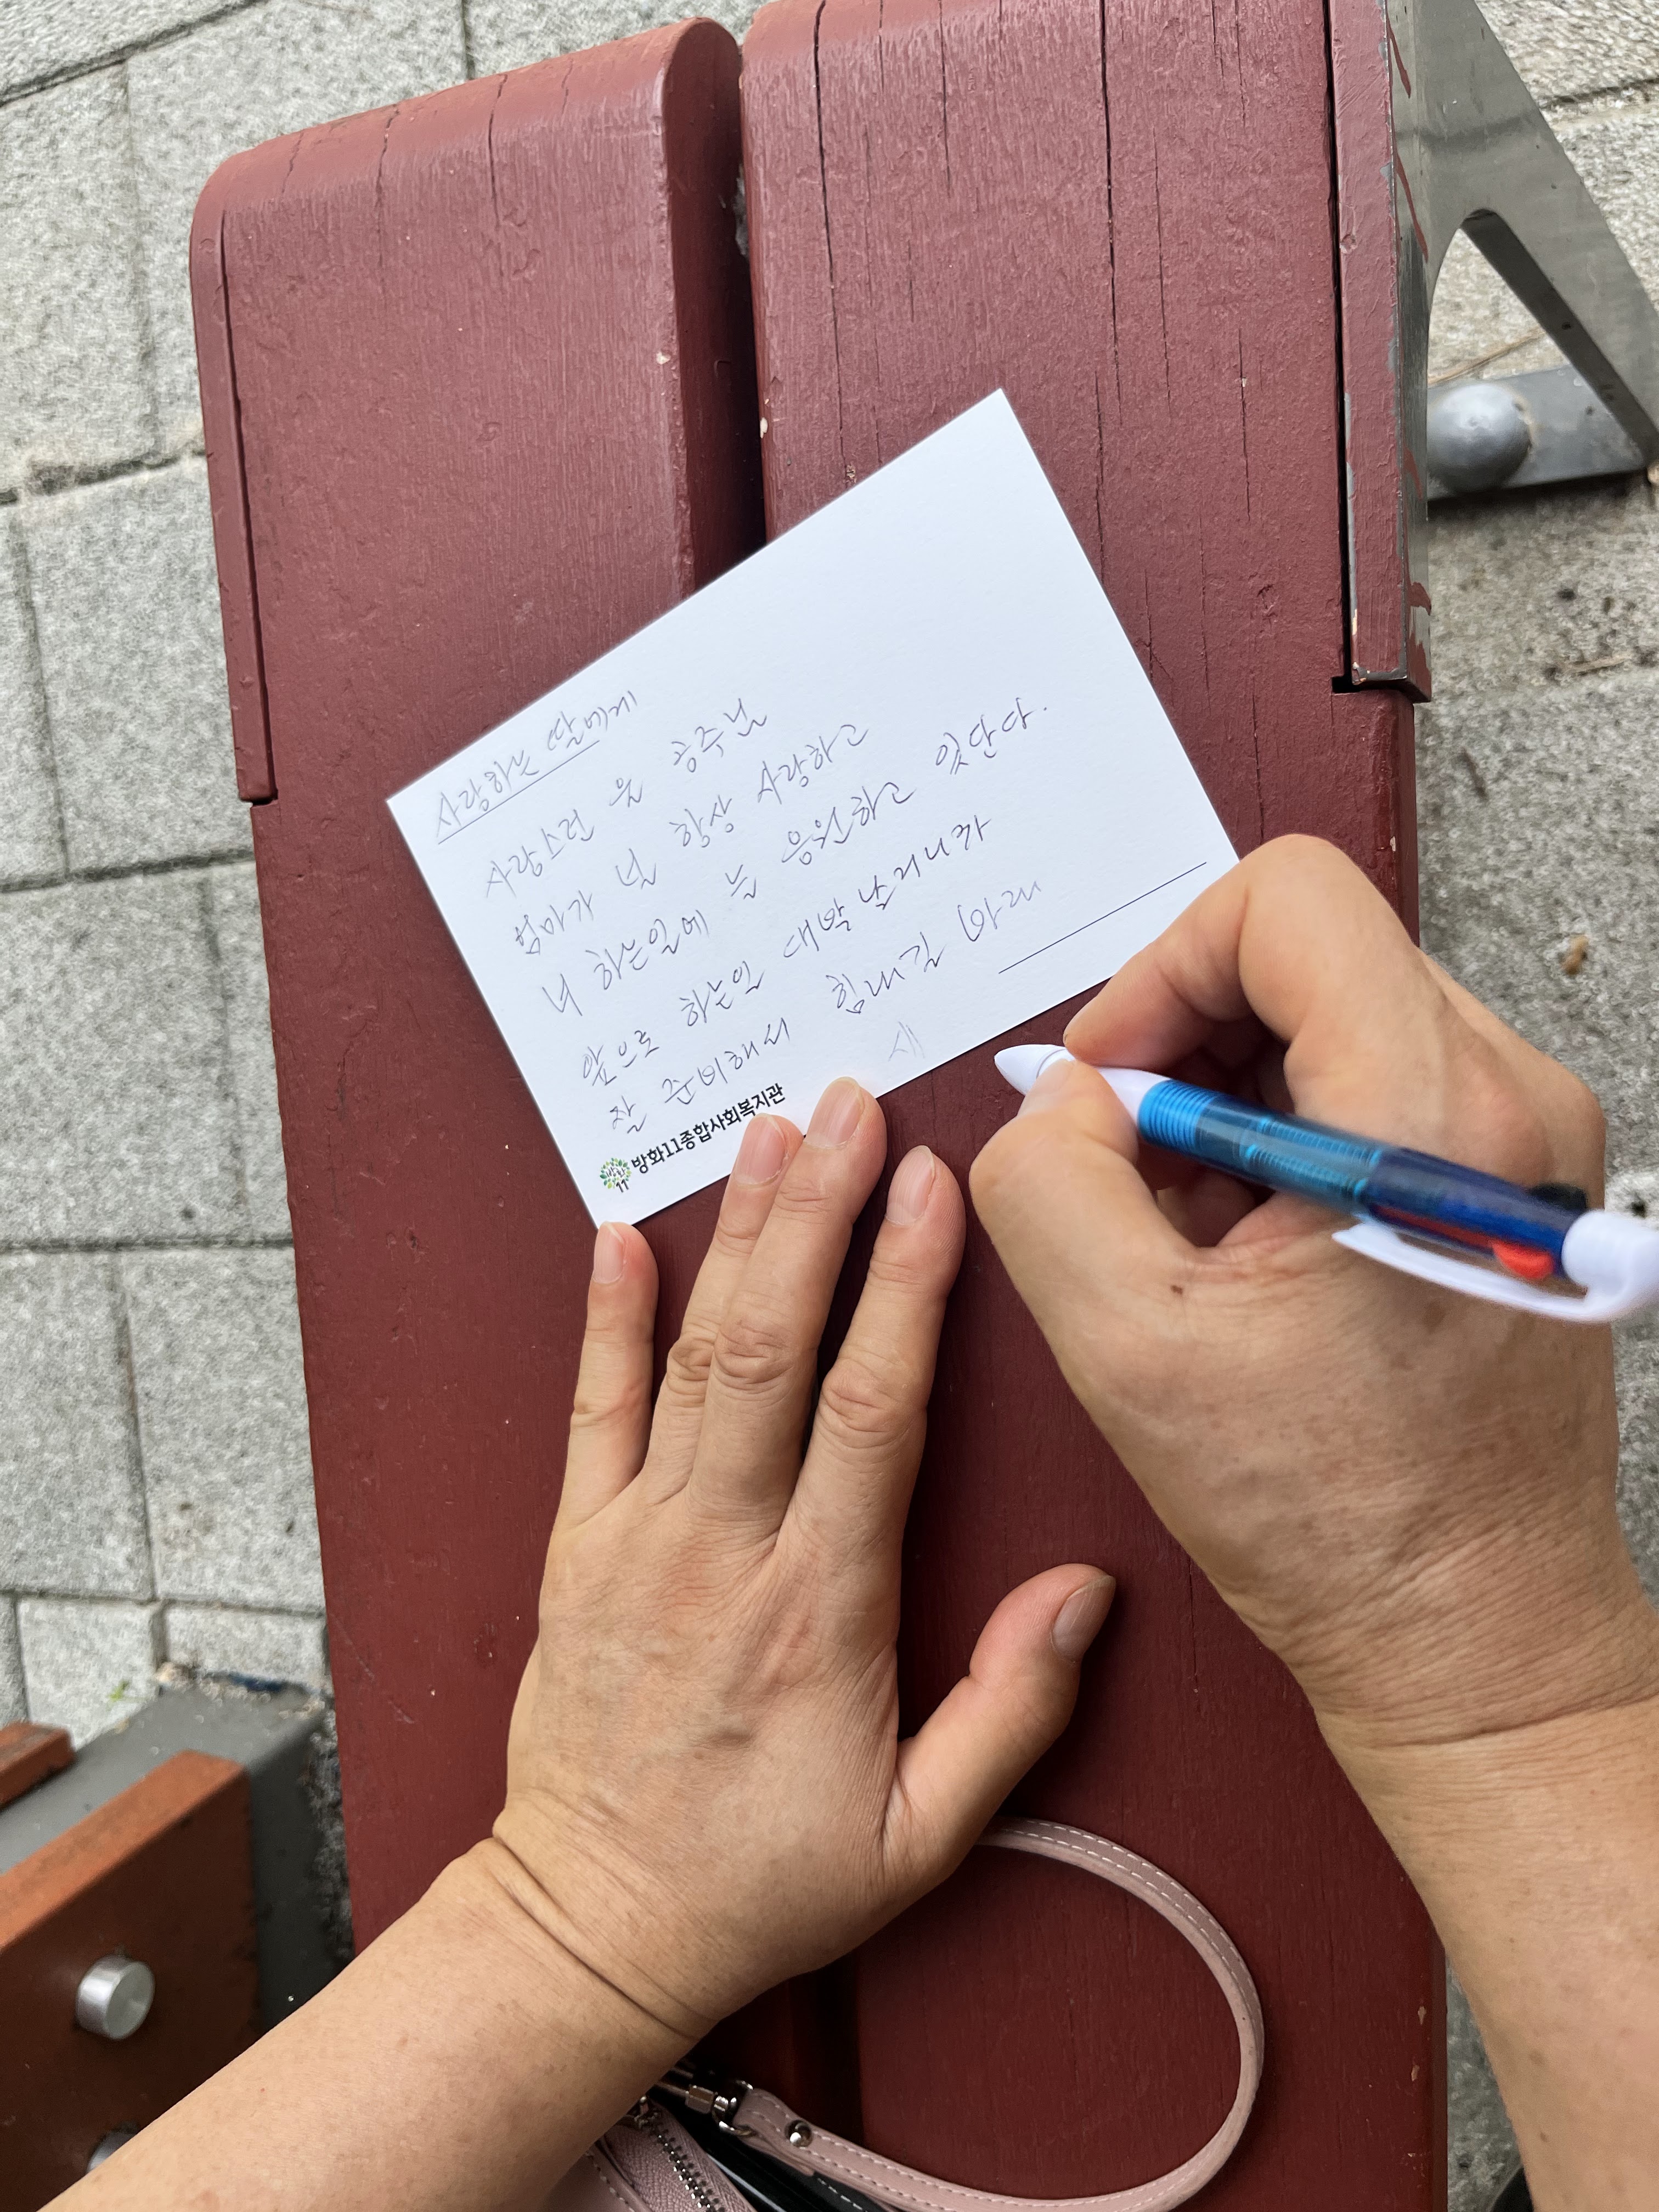 사랑하는 딸에게
사랑스런 울 공주님
엄마가 널 항상 사랑하고
너 하는일에 늘 응원하고 있단다.
앞으로 하는일 대박 날거니까
잘 준비해서 힘내길 바래
방화11종합사회복지관
방화
11